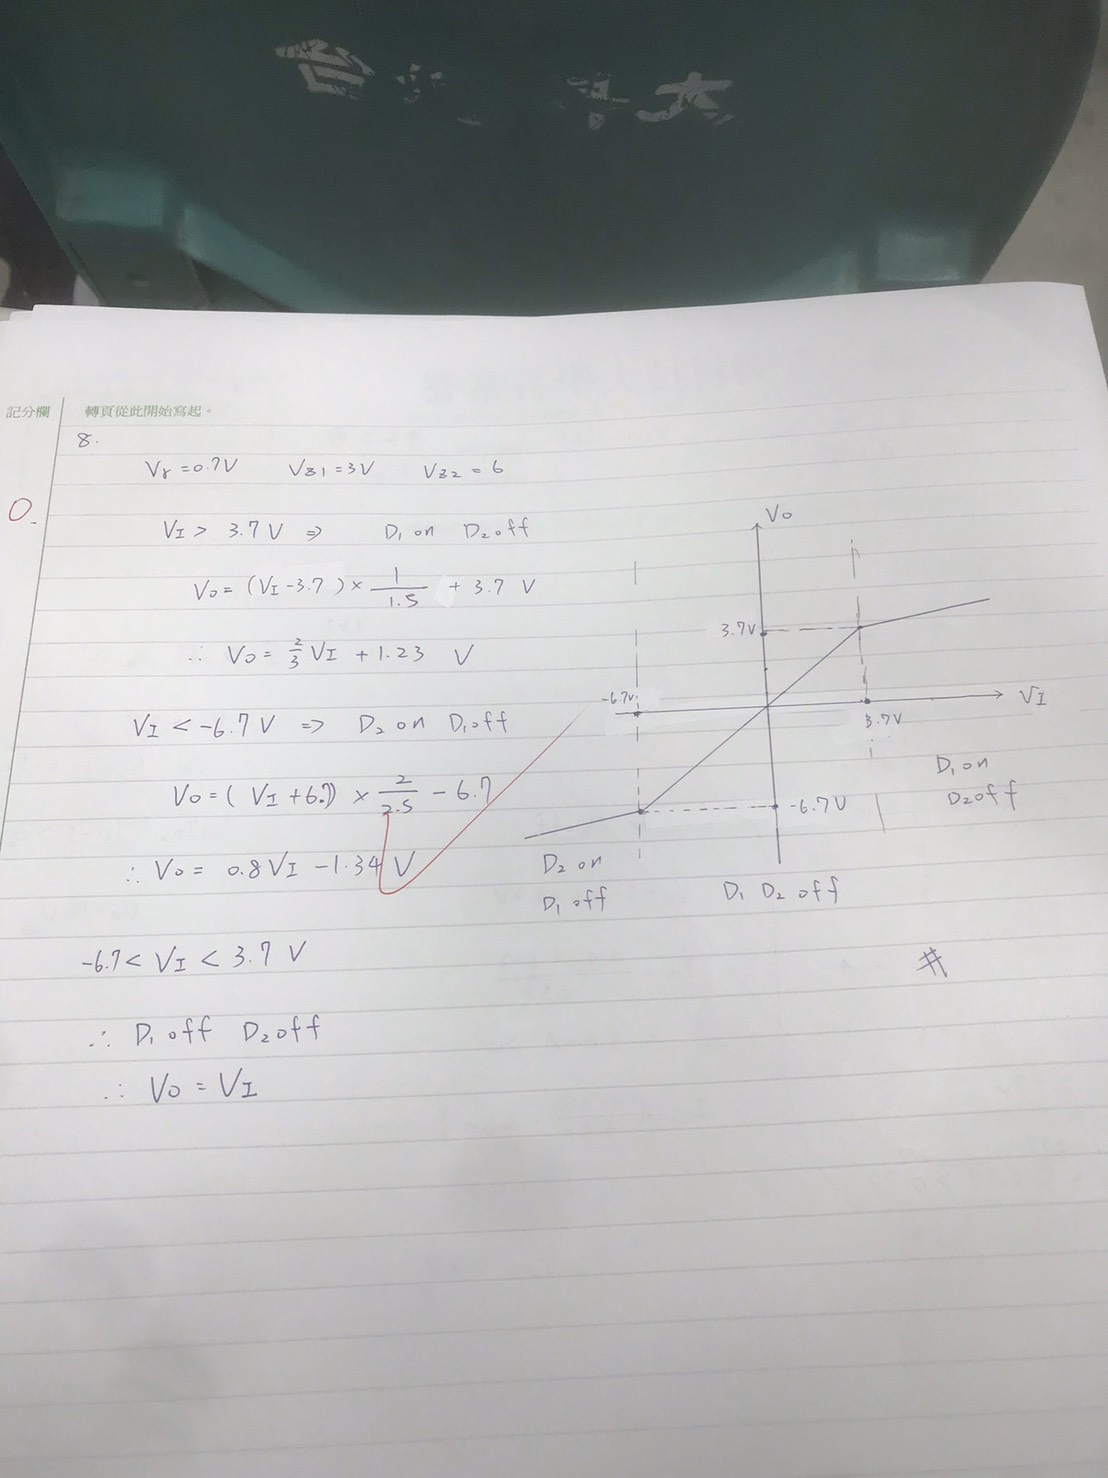 科大
記分欄 轉頁從此開始寫起。
8.
0
Vγ = 0.7V VZ1 = 3V VZ2 = 6
VI > 3.7 V ⇒ D1 on D2 off
Vo = (VI - 3.7) × 1/1.5 + 3.7 V
∴ Vo = 2/3 VI + 1.23 V
VI < -6.7 V ⇒ D2 on D1 off
Vo = (VI + 6.7) × 2/2.5 - 6.7
∴ Vo = 0.8 VI - 1.34 V
-6.7 < VI < 3.7 V
∴ D1 off D2 off
∴ Vo = VI
Vo
3.7V
-6.7V
VI
3.7V
-6.7V
D1 on
D2 off
D2 on
D1 off
D1 D2 off
#